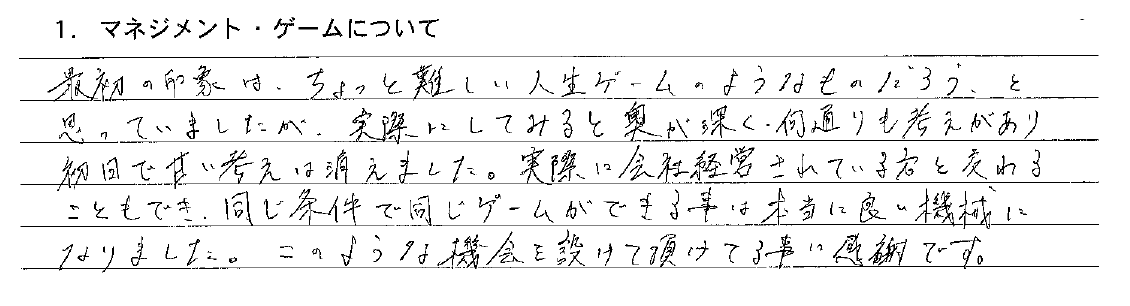 1. マネジメント・ゲームについて
最初の印象は、ちょっと難しい人生ゲームのようなものだろう、と
思っていましたが、実際にしてみると奥が深く、何通りも考えがあり
初日で甘い考えは消えました。実際に会社経営されている方と交われる
こともでき、同じ条件で同じゲームができる事は本当に良い機械に
なりました。このような機会を設けて頂けてる事に感謝です。